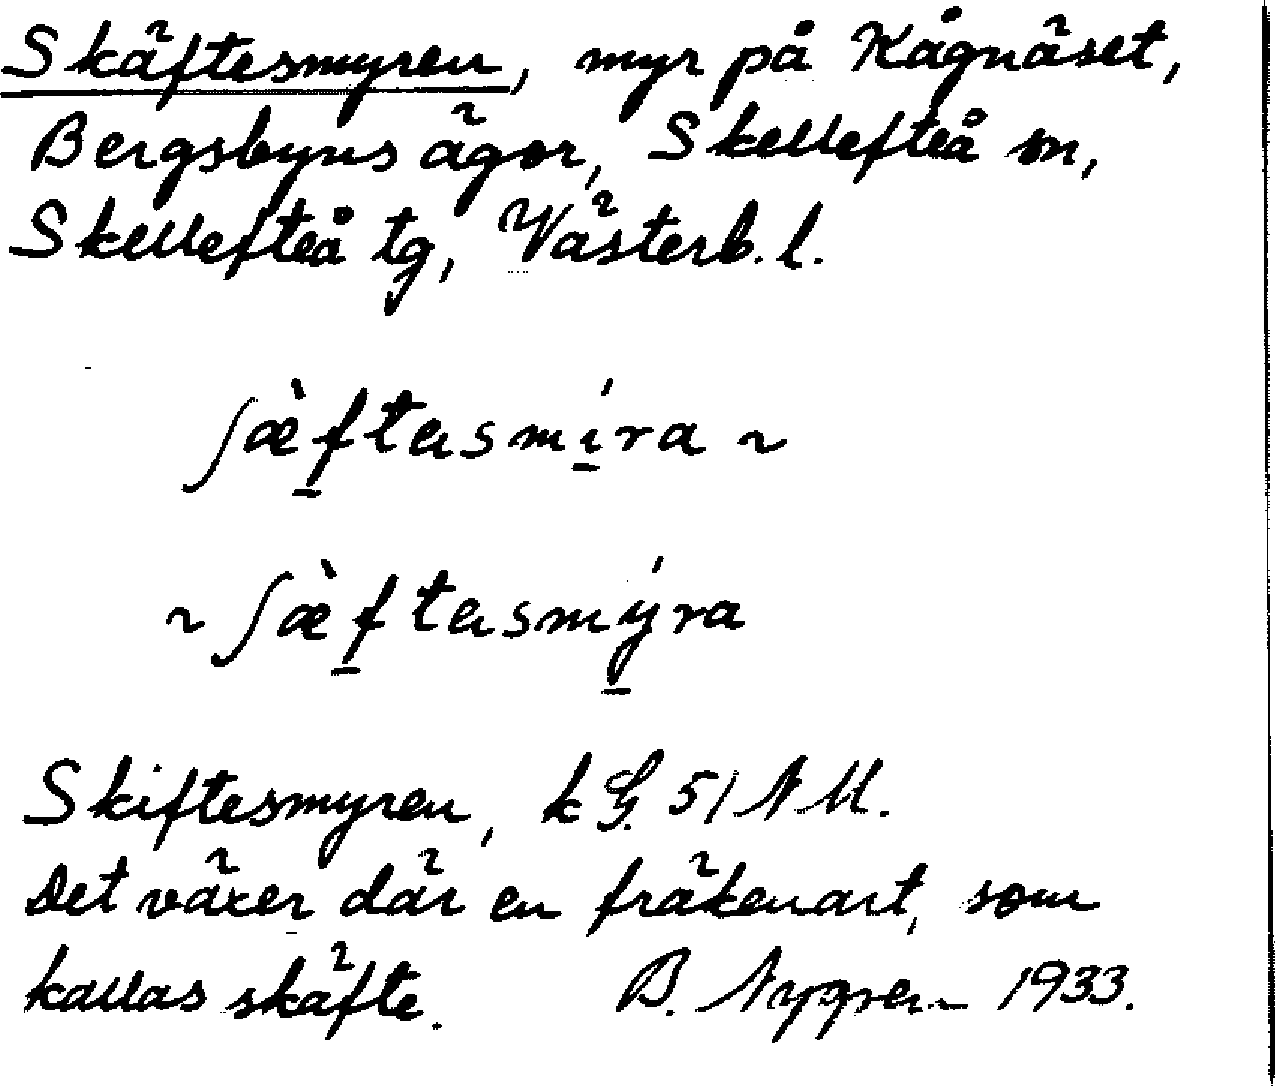 Skäftesmyren, myr på Kågnäset,
Bergsbyns ägor, Skellefteå sn,
Skellefteå tg, Västerb. l.
ʃæ̀f̲tasmí̲ra ~
~ ʃæ̀f̲tasmý̲ra
Skiftesmyren, k G. 51 N M.
Det växer där en fräkenart, som
kallas skäfte. B. Nygren 1933.